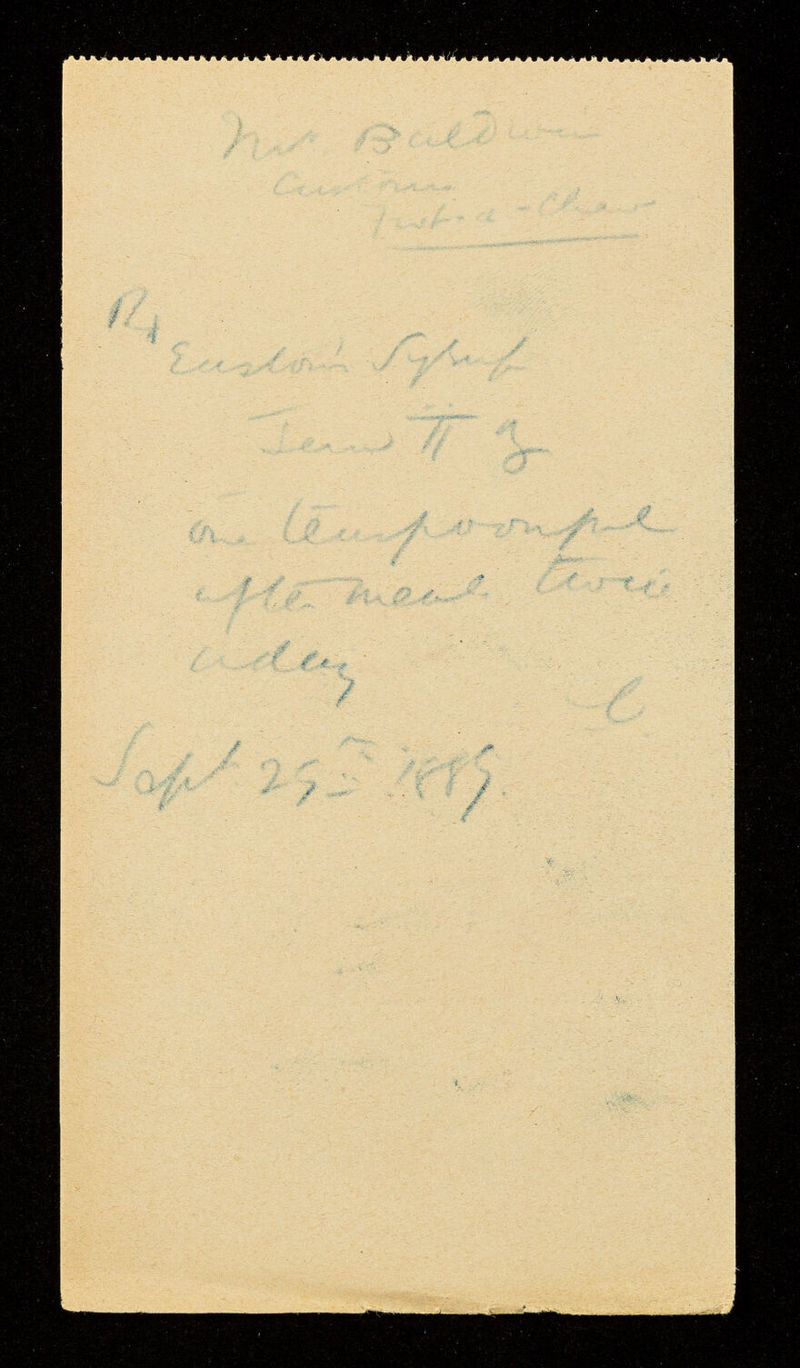 Mr. Baldwin
Customs
Foo-Chow
Rx
Easton's Syrup
ii ℥
one teaspoonful
after meals twice
a day
C
Sept 29th 1889.